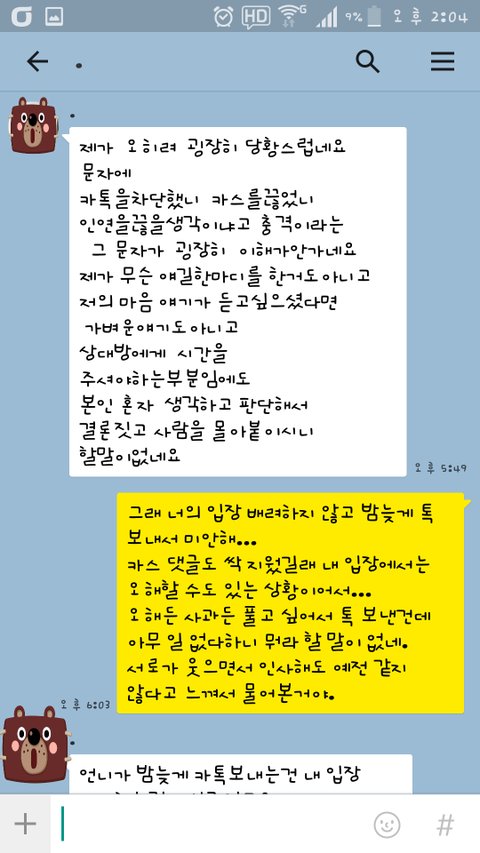 HD G 9% 오후 2:04
.
.
제가 오히려 굉장히 당황스럽네요
문자에
카톡을차단했니 카스를끊었니
인연을끊을생각이냐고 충격이라는
그 문자가 굉장히 이해가안가네요
제가 무슨 얘길한마디를 한거도아니고
저의 마음 얘기가 듣고싶으셨다면
가벼운얘기도아니고
상대방에게 시간을
주셔야하는부분임에도
본인 혼자 생각하고 판단해서
결론짓고 사람을 몰아붙이시니
할말이없네요
오후 5:49
그래 너의 입장 배려하지 않고 밤늦게 톡
보내서 미안해...
카스 댓글도 싹 지웠길래 내 입장에서는
오해할 수도 있는 상황이어서...
오해든 사과든 풀고 싶어서 톡 보낸건데
아무 일 없다하니 뭐라 할 말이 없네.
서로가 웃으면서 인사해도 예전 같지
않다고 느껴서 물어본거야.
오후 6:03
.
언니가 밤늦게 카톡보내는건 내 입장
+ #